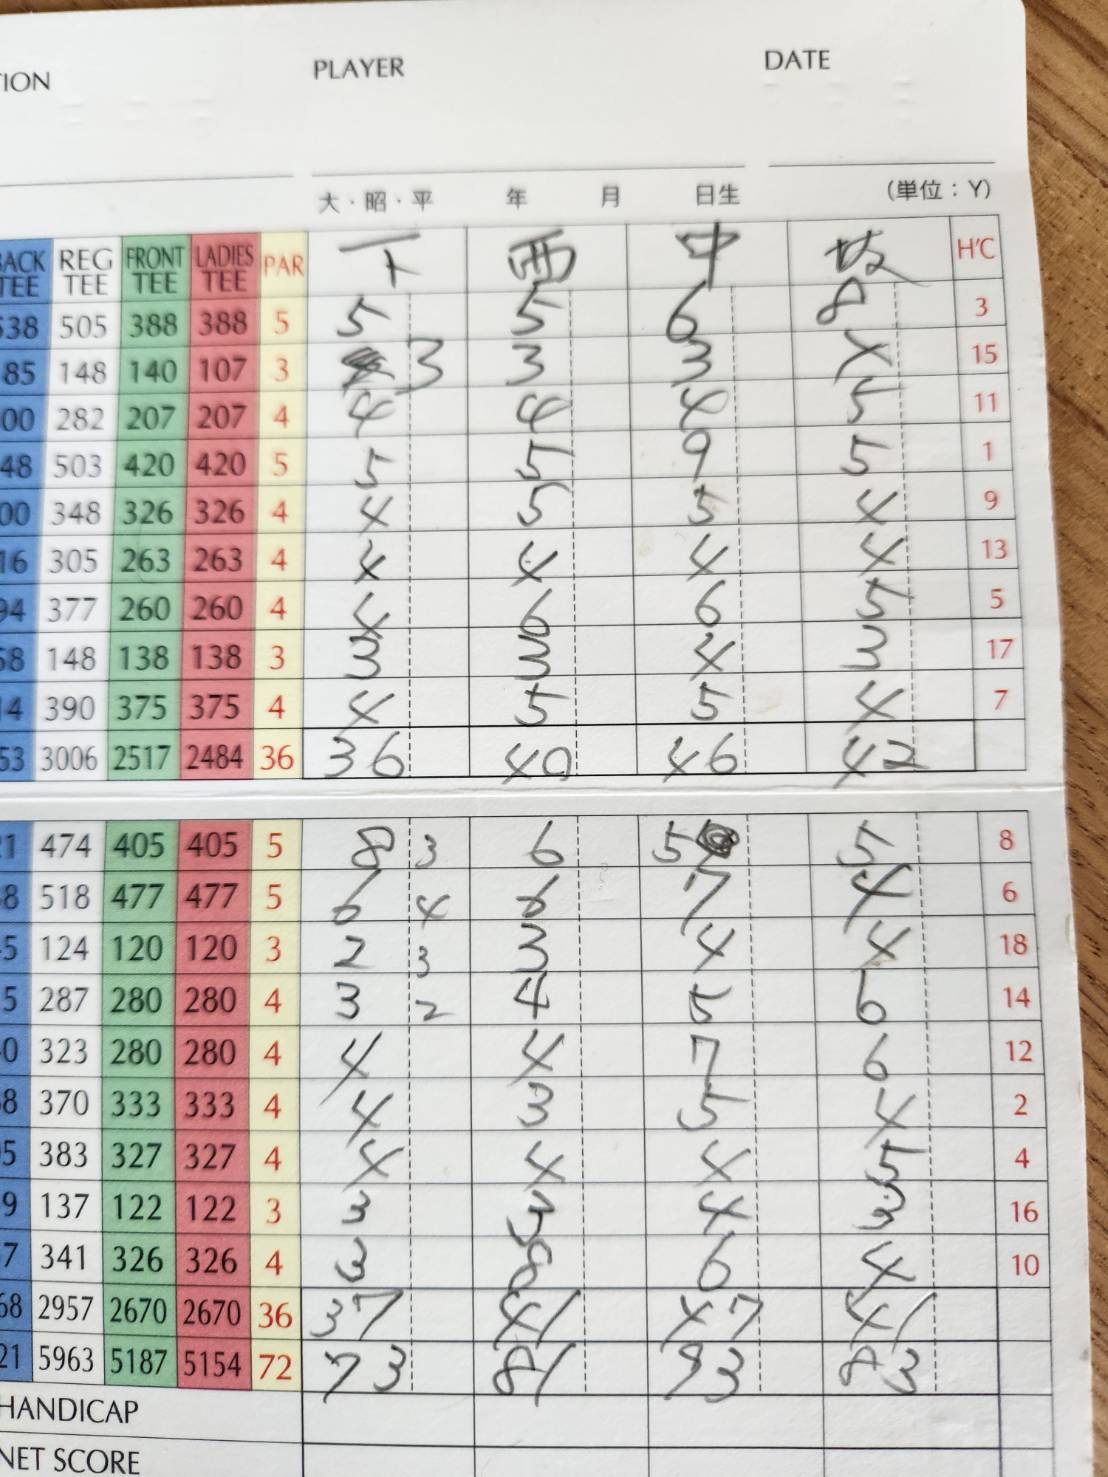 TION PLAYER DATE
大・昭・平 年 月 日生 (単位：Y)
BACK TEE REG TEE FRONT TEE LADIES TEE PAR 下 西 中 坂 H'C
538 505 388 388 5 5 5 6 8 3
85 148 140 107 3 3 3 3 4 15
00 282 207 207 4 4 4 4 5 11
48 503 420 420 5 5 5 9 5 1
00 348 326 326 4 4 5 5 4 9
16 305 263 263 4 4 4 4 4 13
94 377 260 260 4 4 6 6 5 5
58 148 138 138 3 3 3 4 3 17
14 390 375 375 4 4 5 5 4 7
53 3006 2517 2484 36 36 40 46 42
21 474 405 405 5 8 3 6 5 5 8
8 518 477 477 5 6 4 6 7 4 6
5 124 120 120 3 2 3 3 4 4 18
5 287 280 280 4 3 2 4 5 6 14
0 323 280 280 4 4 4 7 6 12
8 370 333 333 4 4 3 5 4 2
5 383 327 327 4 4 4 4 5 4
9 137 122 122 3 3 3 4 3 16
7 341 326 326 4 3 8 6 4 10
68 2957 2670 2670 36 37 41 47 41
21 5963 5187 5154 72 73 81 93 83
HANDICAP
NET SCORE